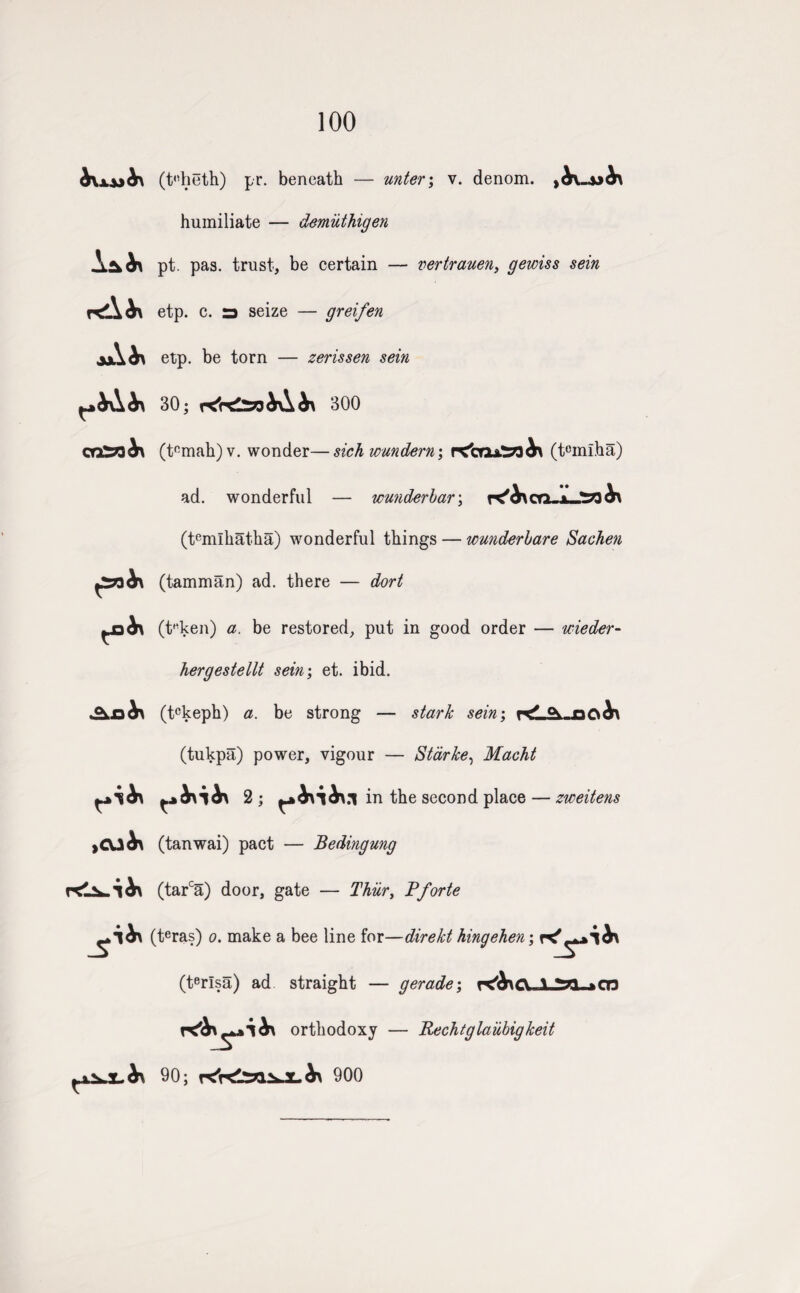 100
ܬܚܝܬ (tᵉḥēth) pr. beneath — unter; v. denom. ܬܚܬܝ
humiliate — demüthigen
ܬܟܠ pt. pas. trust, be certain — vertrauen, gewiss sein
ܬܠܐ etp. c. ܒ seize — greifen
ܬܠܚ etp. be torn — zerissen sein
ܬܠܬܝܢ 30; ܬܠܬܡܐܐ 300
ܬܡܗ (tᵉmah) v. wonder — sich wundern; ܬܡܝܗܐ (tᵉmīhā)
ad. wonderful — wunderbar; ܬܡܝ̈ܗܬܐ
(tᵉmīhāthā) wonderful things — wunderbare Sachen
ܬܡܢ (tammān) ad. there — dort
ܬܩܢ (tᵉḳen) a. be restored, put in good order — wieder-
hergestellt sein; et. ibid.
ܬܩܦ (tᵉḳeph) a. be strong — stark sein; ܬܘܩܦܐ
(tuḳpā) power, vigour — Stärke, Macht
ܬܪܝܢ ܬܪܬܝܢ 2; ܕܬܪܬܝܢ in the second place — zweitens
ܬܢܘܝ (tanwai) pact — Bedingung
ܬܪܥܐ (tarᶜā) door, gate — Thür, Pforte
ܬܪܨ (tᵉraṣ) o. make a bee line for — direkt hingehen; ܬܪܝܨܐ
(tᵉrīṣā) ad straight — gerade; ܗܝܡܢܘܬܐ
ܬܪܝܨܬܐ orthodoxy — Rechtglaübigkeit
ܬܫܥܝܢ 90; ܬܫܥܡܐܐ 900